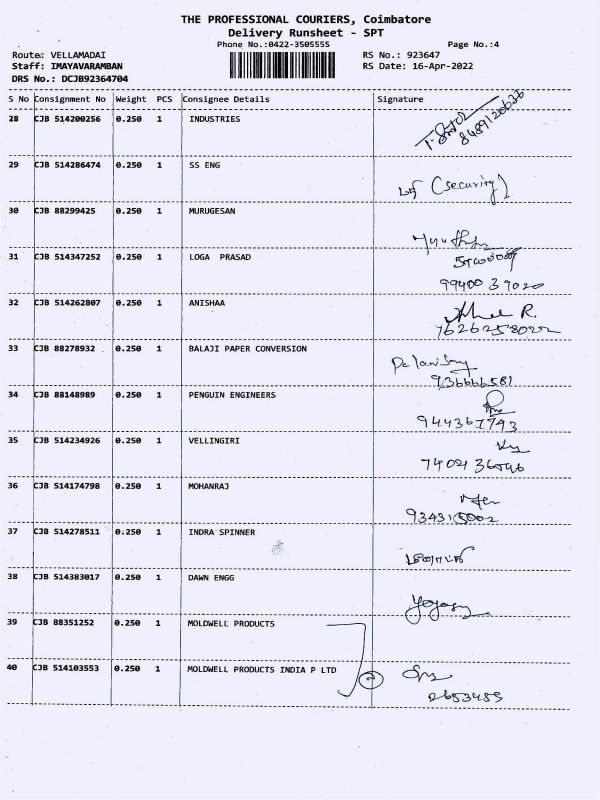 THE PROFESSIONAL COURIERS, Coimbatore
Delivery Runsheet - SPT
Phone No.:0422-3505555 Page No.:4
Route: VELLAMADAI RS No.: 923647
Staff: IMAYAVARAMBAN RS Date: 16-Apr-2022
DRS No.: DCJB92364704
S No Consignment No Weight PCS Consignee Details Signature
28 CJB 514200256 0.250 1 INDUSTRIES
8489120636
29 CJB 514286474 0.250 1 SS ENG
(Security)
30 CJB 88299425 0.250 1 MURUGESAN
31 CJB 514347252 0.250 1 LOGA PRASAD
99400 39020
32 CJB 514262807 0.250 1 ANISHAA
R.
33 CJB 88278932 0.250 1 BALAJI PAPER CONVERSION
34 CJB 88148989 0.250 1 PENGUIN ENGINEERS
35 CJB 514234926 0.250 1 VELLINGIRI
36 CJB 514174798 0.250 1 MOHANRAJ
37 CJB 514278511 0.250 1 INDRA SPINNER
38 CJB 514383017 0.250 1 DAWN ENGG
39 CJB 88351252 0.250 1 MOLDWELL PRODUCTS
40 CJB 514103553 0.250 1 MOLDWELL PRODUCTS INDIA P LTD
2
2653485